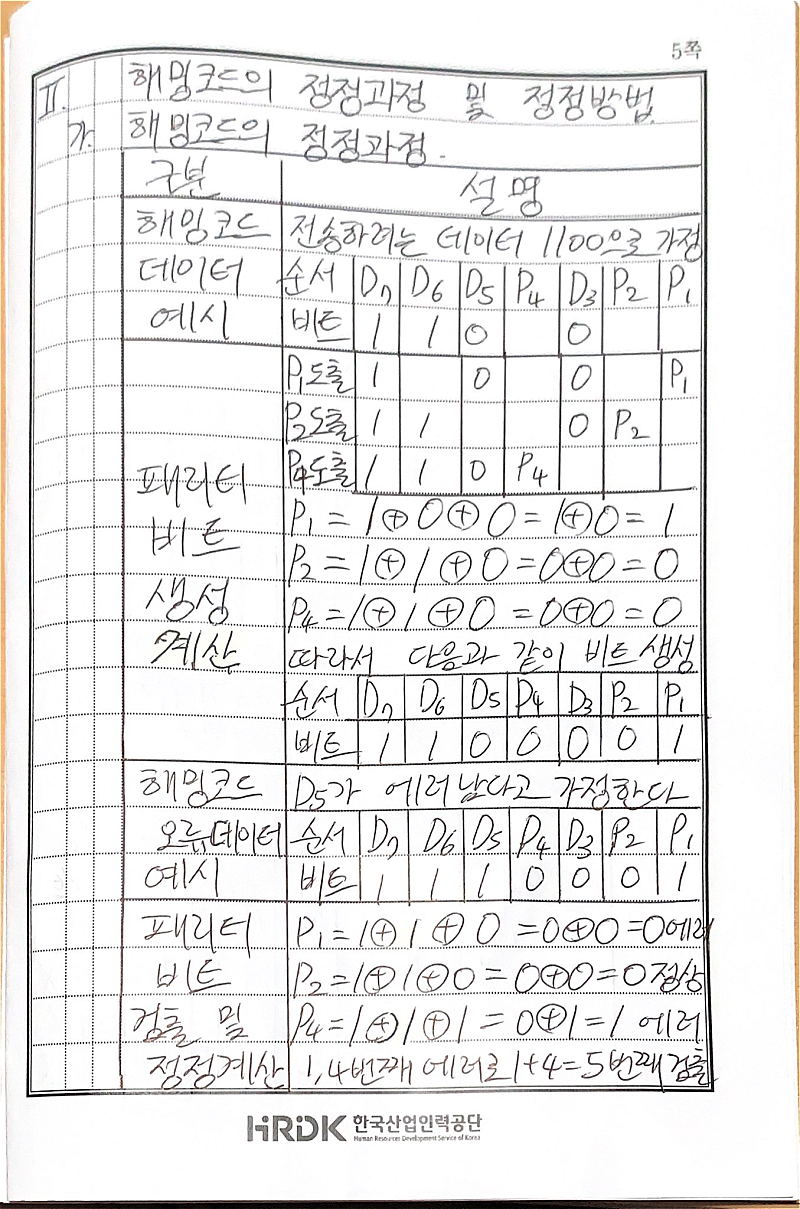 5쪽
II. 해밍코드의 정정과정 및 정정방법.
가. 해밍코드의 정정과정.
구분 설명
해밍코드 전송하려는 데이터 1100으로 가정
데이터 순서 D7 D6 D5 P4 D3 P2 P1
예시 비트 1 1 0 0
P1도출 1 0 0 P1
P2도출 1 1 0 P2
패리티 P4도출 1 1 0 P4
비트 P1 = 1⊕0⊕0 = 1⊕0 = 1
P2 = 1⊕1⊕0 = 0⊕0 = 0
생성 P4 = 1⊕1⊕0 = 0⊕0 = 0
계산 따라서 다음과 같이 비트 생성
순서 D7 D6 D5 P4 D3 P2 P1
비트 1 1 0 0 0 0 1
해밍코드 D5가 에러났다고 가정한다
오류데이터 순서 D7 D6 D5 P4 D3 P2 P1
예시 비트 1 1 1 0 0 0 1
패리티 P1 = 1⊕1⊕0 = 0⊕0 = 0 에러
비트 P2 = 1⊕1⊕0 = 0⊕0 = 0 정상
검출 및 P4 = 1⊕1⊕1 = 0⊕1 = 1 에러
정정계산 1,4번째 에러로 1+4=5번째 검출
HRDK 한국산업인력공단
Human Resources Development Service of Korea